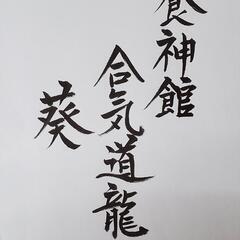 食神館
合気道龍
葵